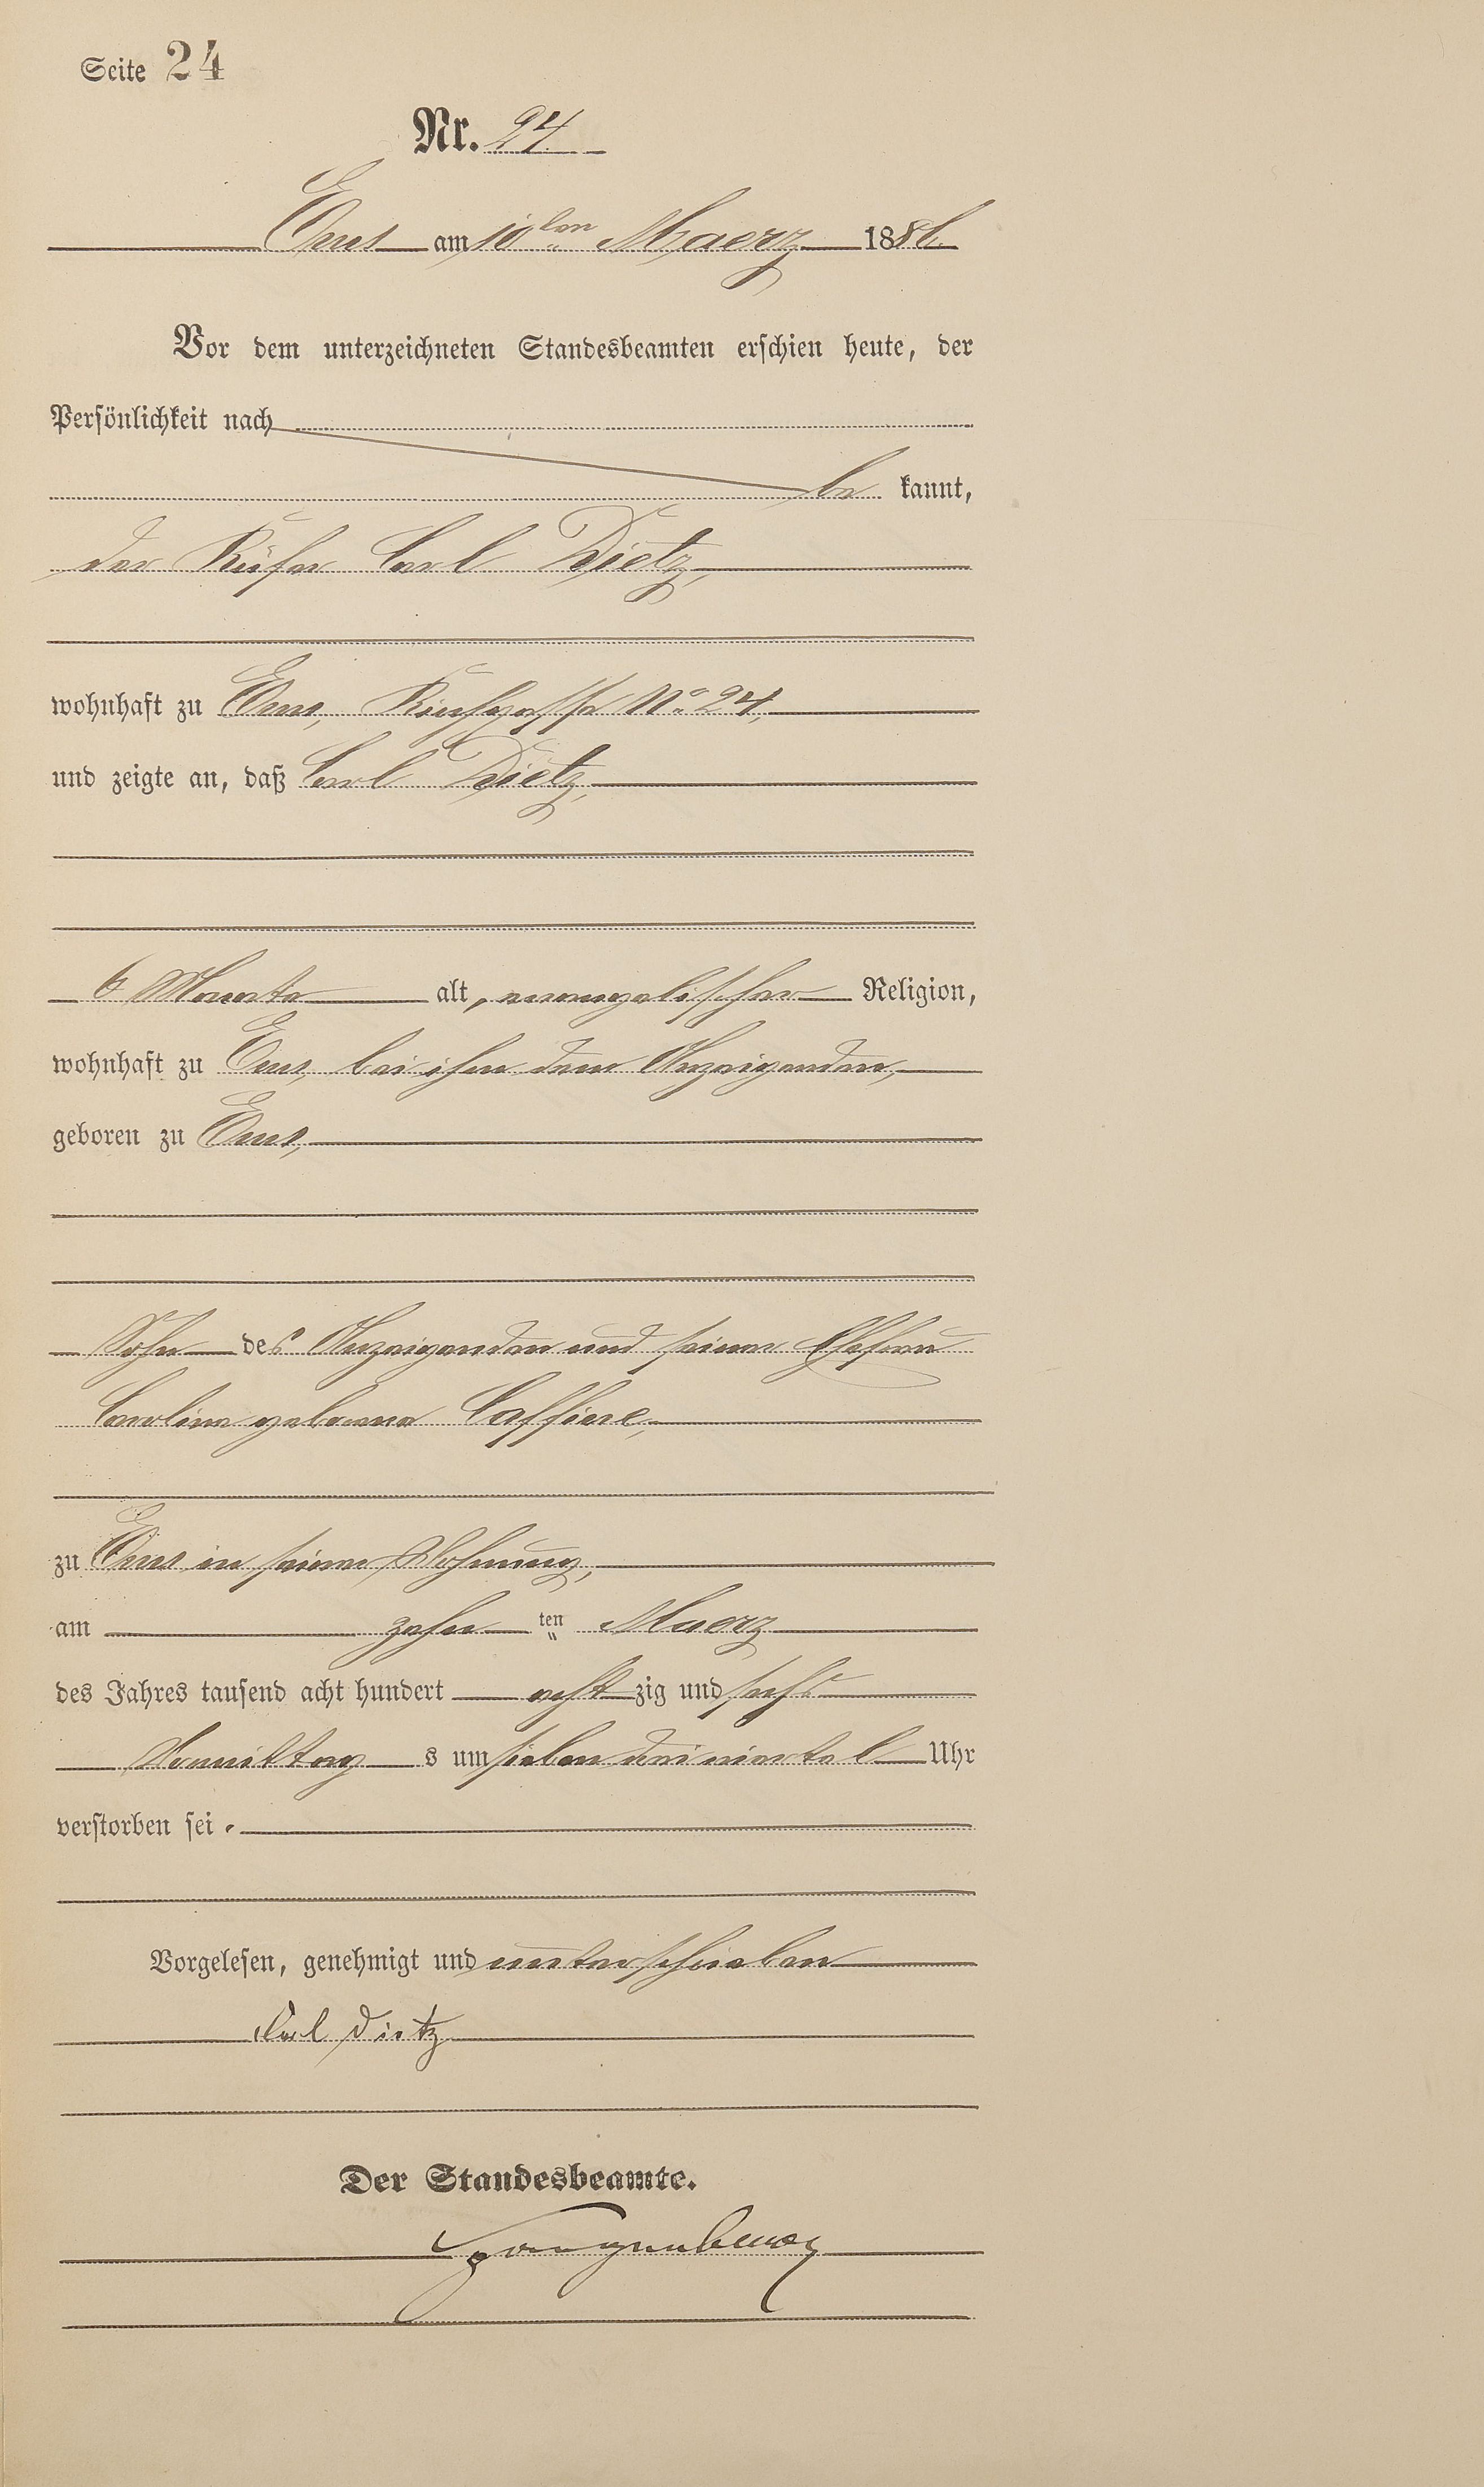 Seite 24
Nr. 24.
Ems am 10ten Maerz 1886.
Vor dem unterzeichneten Standesbeamten erschien heute, der
Persönlichkeit nach
be kannt,
der Küfer Carl Dietz,
wohnhaft zu Ems, No. 24,
und zeigte an, daß Carl Dietz,
6 Monate alt, evangelischer Religion,
wohnhaft zu Ems, bei ihm dem Anzeigenden,
geboren zu Ems,
Sohn des Anzeigenden und seiner Ehefrau
Caroline geborene Caffine,
zu Ems in seiner Wohnung,
am zehn ten Maerz
des Jahres tausend acht hundert acht zig und sechs
Vormittag s um sieben dreiviertel Uhr
verstorben sei.
Vorgelesen, genehmigt und unterschrieben
Carl Dietz
Der Standesbeamte.